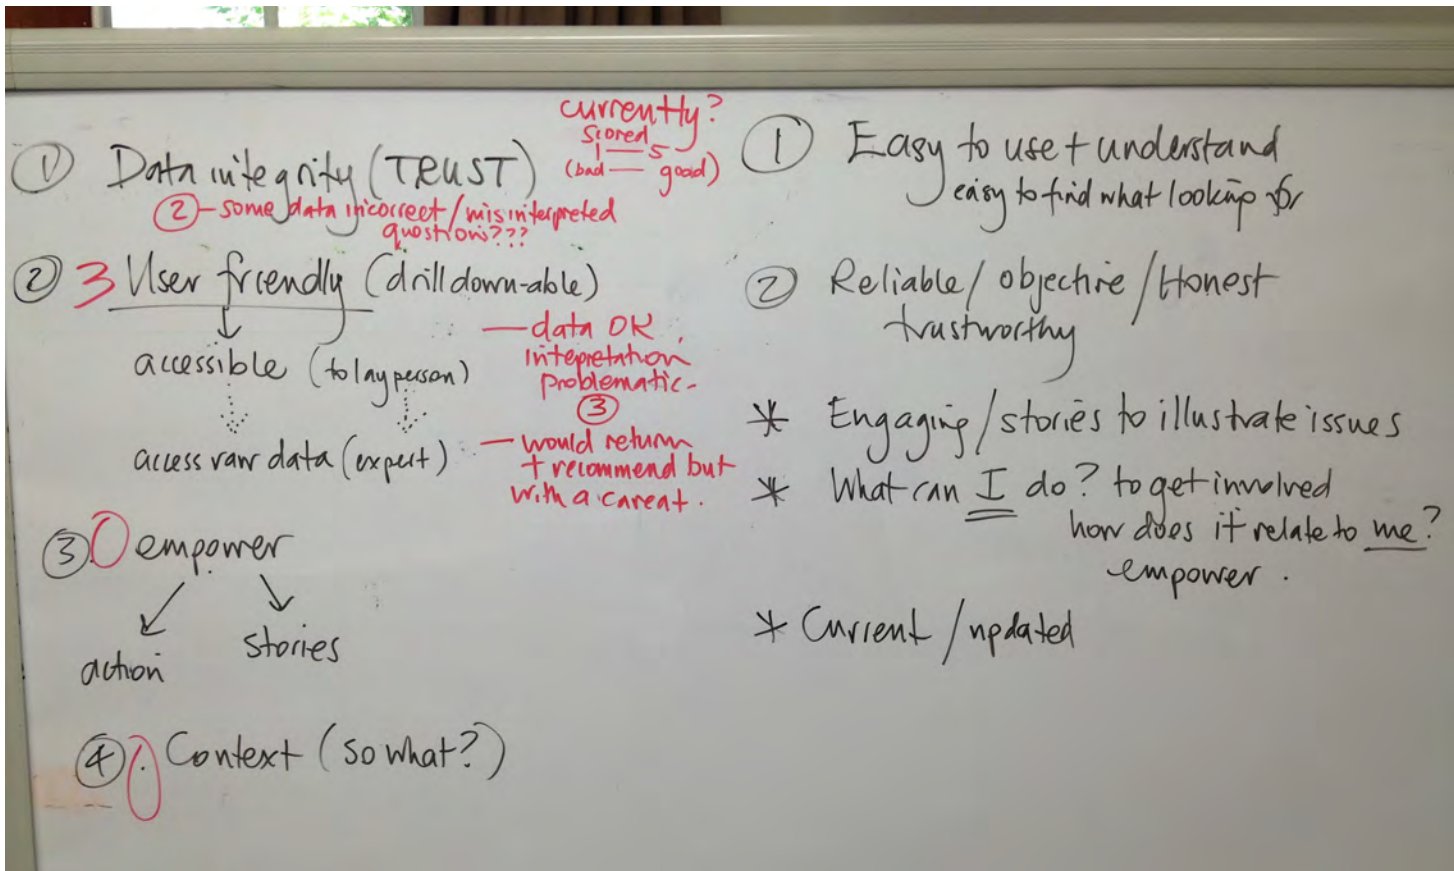 currently?
scored
1 — 5
(bad — good)
① Data integrity (TRUST)
② - some data incorrect / misinterpreted
questions???
② 3 User friendly (drill down-able)
accessible (to lay person)
access raw data (expert)
— data OK,
intepretation
problematic.
③
— would return
+ recommend but
with a caveat.
③. empower
action
stories
④. Context (so what?)
① Easy to use + understand
easy to find what looking for
② Reliable / objective / Honest
trustworthy
* Engaging / stories to illustrate issues
* What can I do? to get involved
how does it relate to me?
empower.
* Current / updated